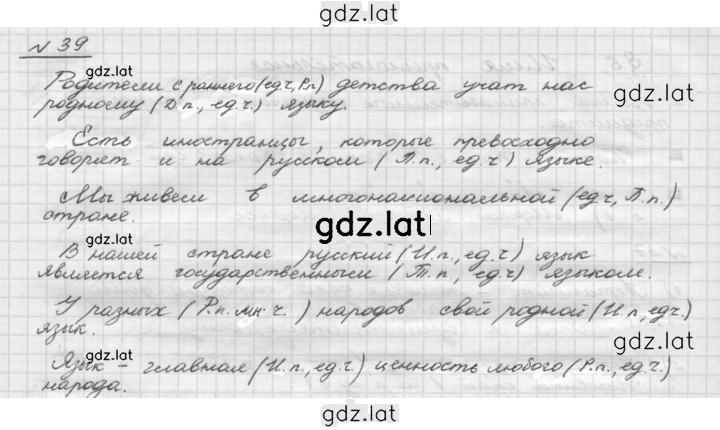 gdz.lat
№ 39
gdz.lat
Родители с раннего (ед.ч, Р.п) детства учат нас
gdz.lat
родному (Д.п., ед.ч.) языку.
Есть иностранцы, которые превосходно
gdz.lat
говорят и на русском (П.п., ед.ч) языке.
Мы живем в многонациональной (ед.ч, П.п.)
стране.
gdz.lat
В нашей стране русский (И.п., ед.ч) язык
gdz.lat
является государственным (Т.п., ед.ч) языком.
У разных (Р.п. мн.ч.) народов свой родной (И.п, ед.ч.)
язык.
gdz.lat
gdz.lat
Язык - главная (И.п., ед.ч) ценность любого (Р.п., ед.ч.)
народа.
gdz.lat